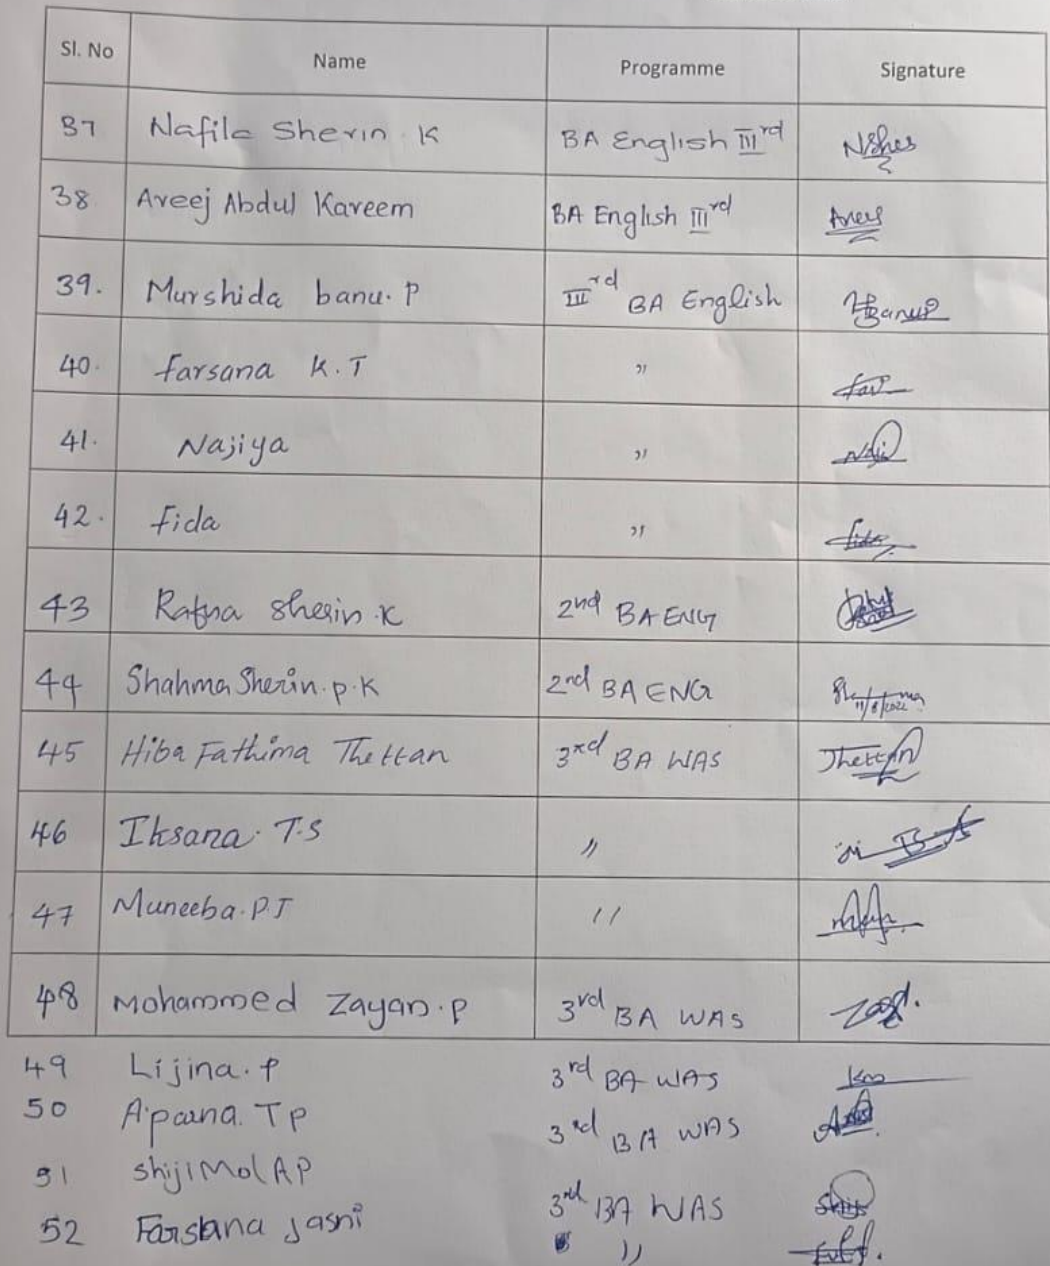 Sl. No Name Programme Signature
37 Nafila Sherin K BA English IIIrd
38 Areej Abdul Kareem BA English IIIrd
39. Murshida banu. P IIIrd BA English
40. farsana K.T "
41. Najiya "
42. fida " fida
43 Rafna sherin.K 2nd BA ENG
44 Shahma Sherin.p.K 2nd BA ENG 11/8/2022
45 Hiba Fathima Thettan 3rd BA WAS Thettan
46 Iksana. T.S "
47 Muneeba.P.T "
48 Mohammed Zayan.p 3rd BA WAS
49 Lijina.P 3rd BA WAS
50 Aparna. T P 3rd BA WAS
51 shijiMol A P 3rd BA WAS
52 Farsana Jasni "